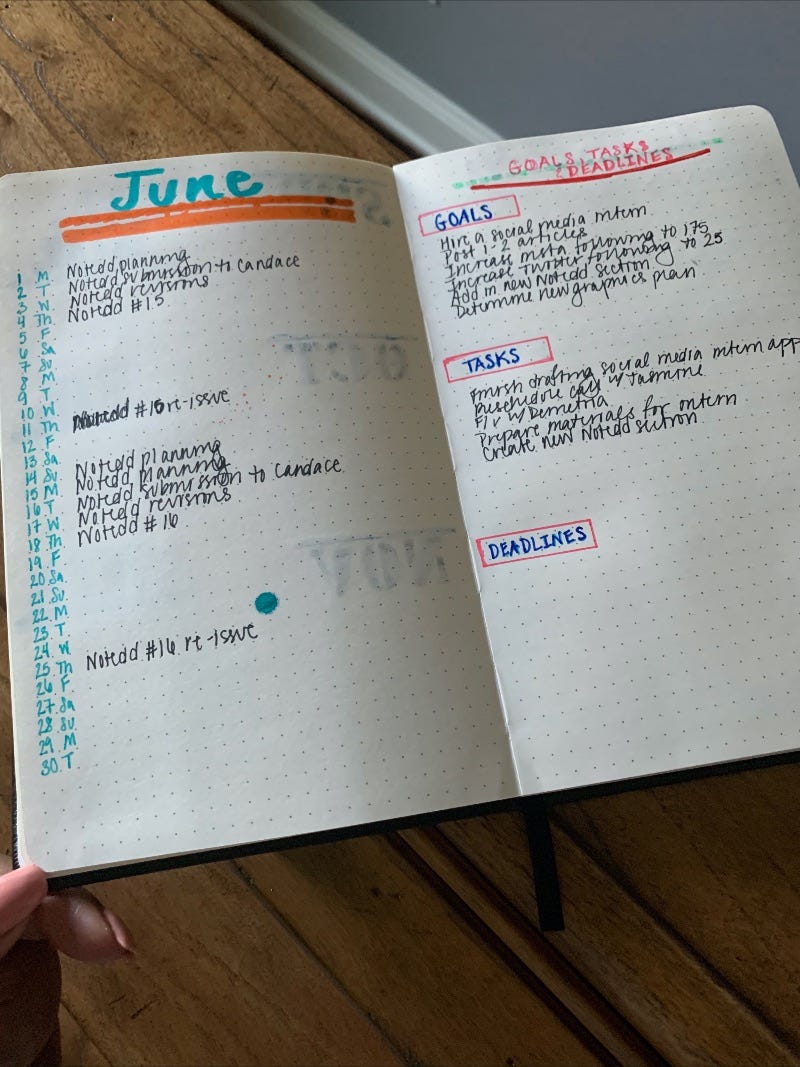 June
1 M Notedd planning
2 T Notedd submission to Candace
3 W Notedd revisions
4 Th Notedd #15
5 F
6 Sa
7 Su
8 M
9 T
10 W
11 Th Notedd #15 re-issue
12 F
13 Sa
14 Su Notedd planning
15 M Notedd planning
16 T Notedd submission to Candace
17 W Notedd revisions
18 Th Notedd #16
19 F
20 Sa
21 Su
22 M
23 T
24 W
25 Th Notedd #16 re-issue
26 F
27 Sa
28 Su
29 M
30 T
GOALS TASKS
& DEADLINES
GOALS
Hire a social media intern
Post 1-2 articles
Increase insta following to 175
Increase Twitter following to 25
Add in new Notedd section
Determine new graphics plan
TASKS
Finish drafting social media intern app
Reschedule call w/ Jasmine
F/u w/ Demetria
Prepare materials for intern
Create new Notedd section
DEADLINES